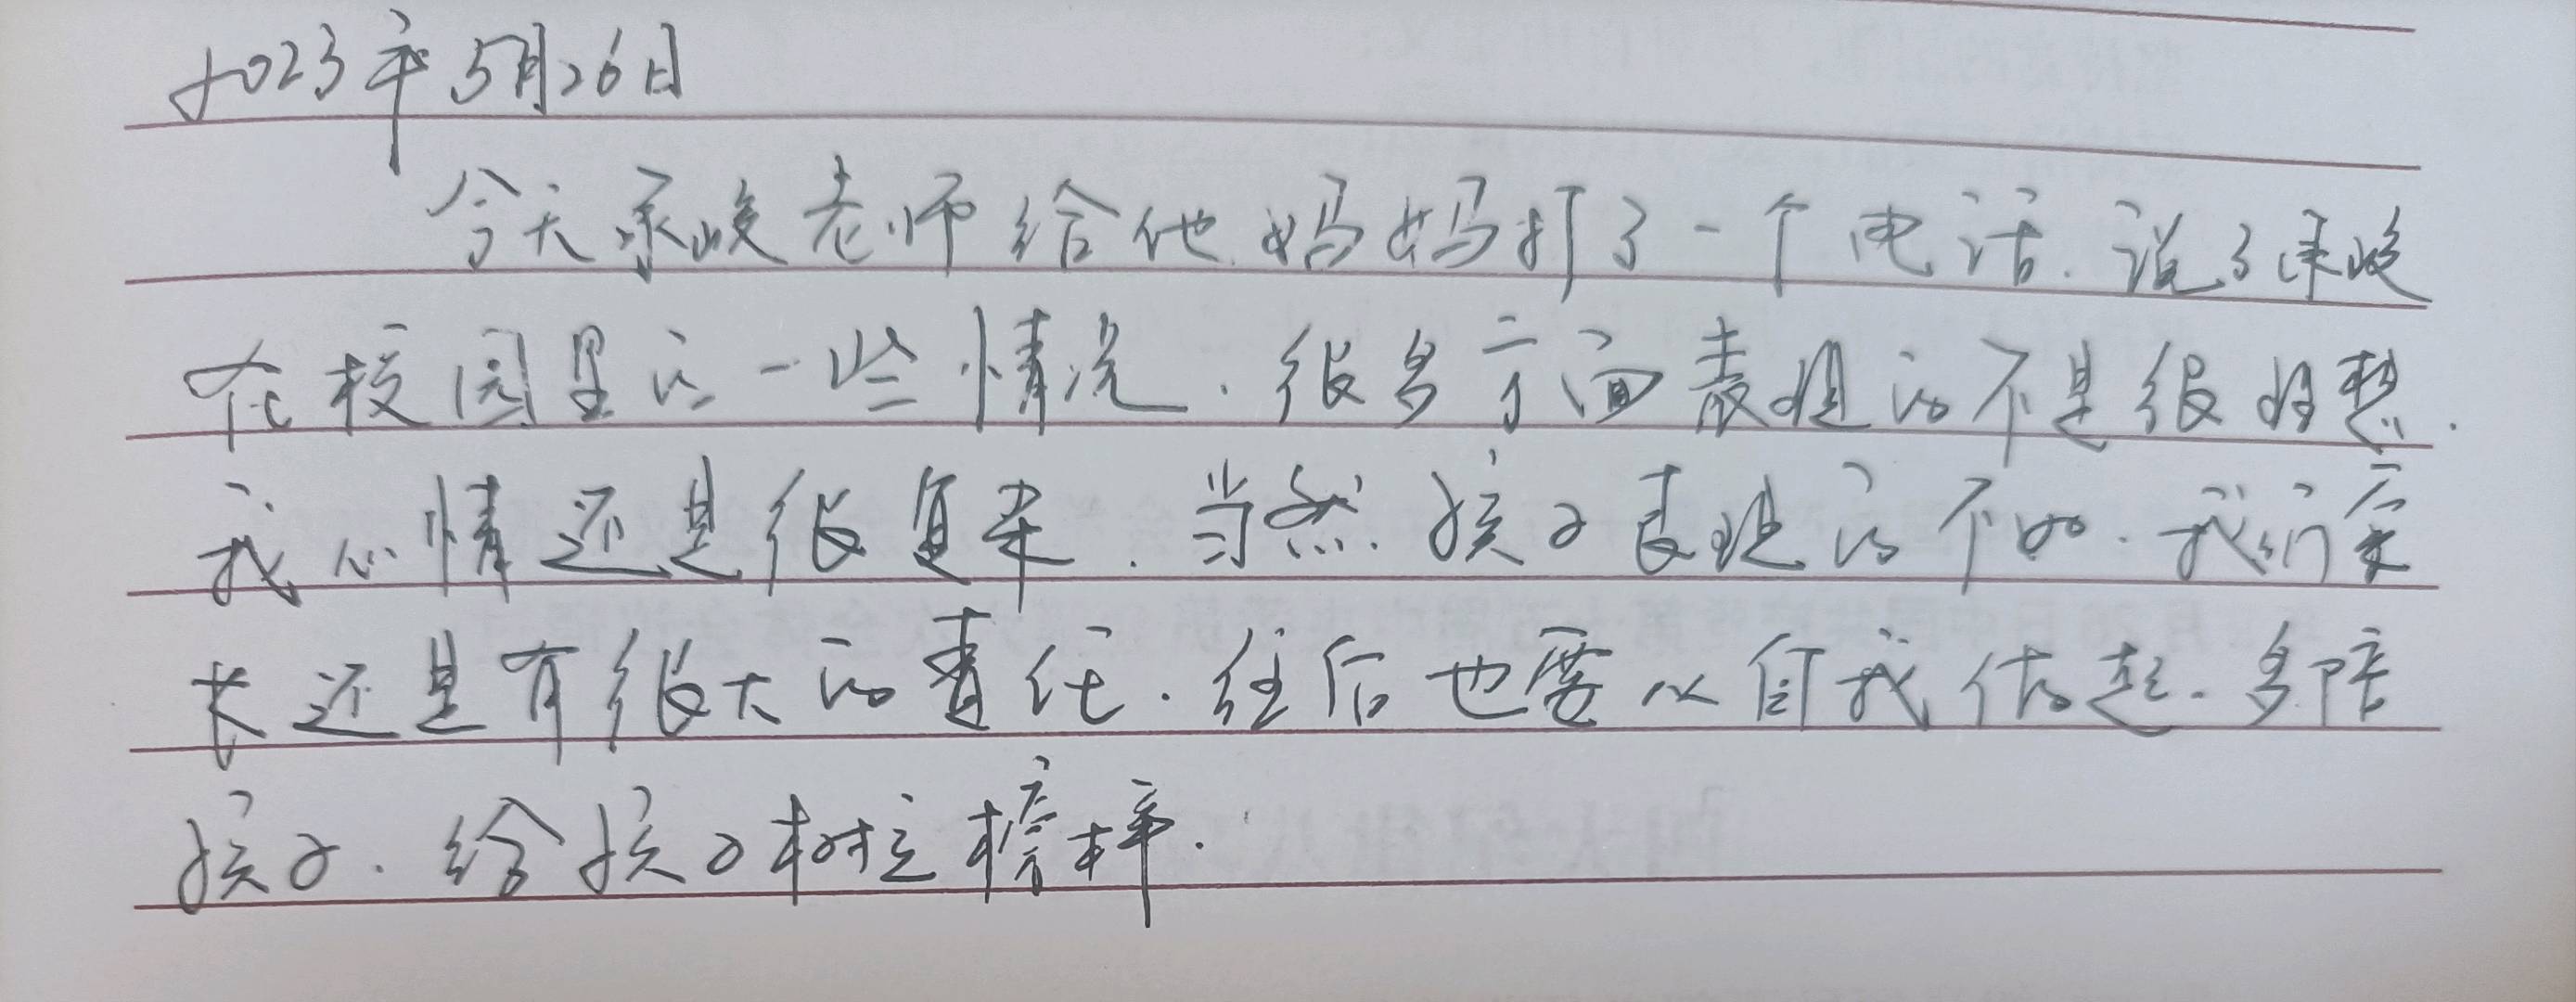 2023年5月26日
今天承峻老师给他妈妈打了一个电话.说了承峻
在校园里的一些情况.很多方面表现的不是很理想.
我心情还是很复杂.当然.孩子表现的不好.我们家
长还是有很大的责任.往后也要从自我做起.多陪
孩子.给孩子树立榜样.